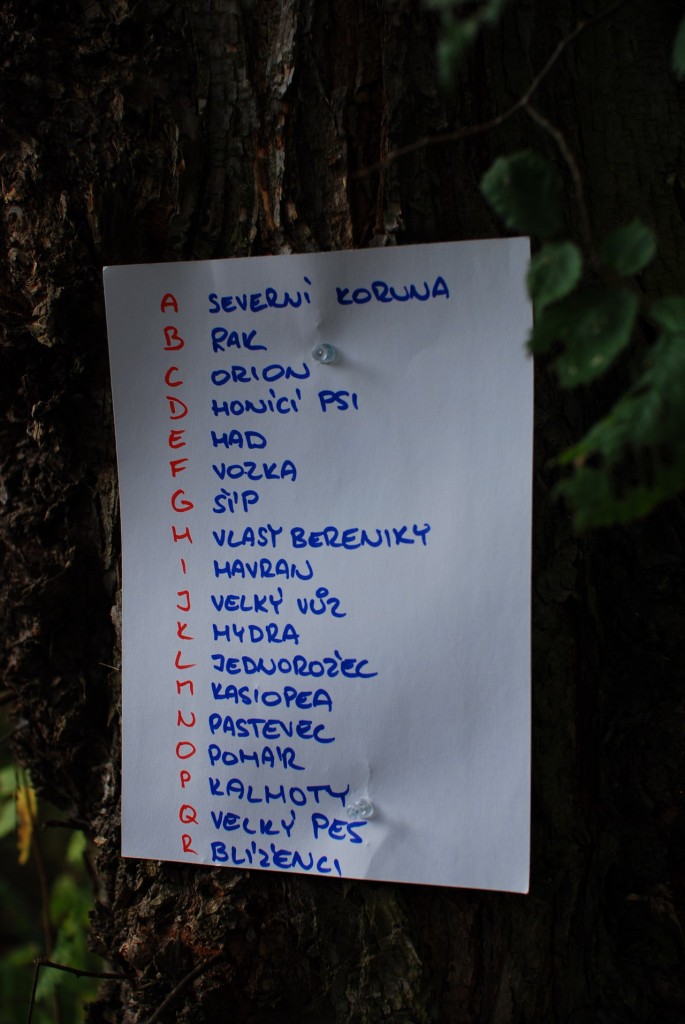 A SEVERNÍ KORUNA
B RAK
C ORION
D HONÍCÍ PSI
E HAD
F VOZKA
G ŠÍP
H VLASY BERENIKY
I HAVRAN
J VELKÝ VŮZ
K HYDRA
L JEDNOROŽEC
M KASIOPEA
N PASTEVEC
O POHÁR
P KALHOTY
Q VELKÝ PES
R BLÍŽENCI